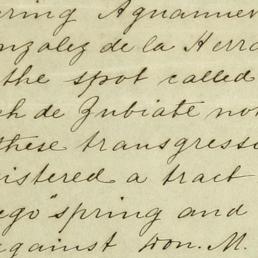 ring Aguanue
nzalez de la Herra
the spot called
ch de Zubiate no
these transgressi
istered a tract
ego" spring and
against Don. M.